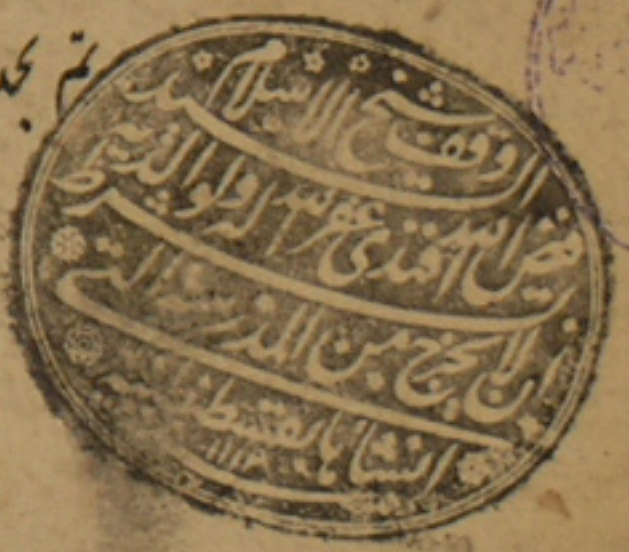 تم بحمد
وقف شيخ الاسلام السيد
فيض الله افندى غفر الله له ولوالديه
بشرط ان لا يخرج من المدرسة التى
انشأها بقسطنطينية
۱۱۱۲